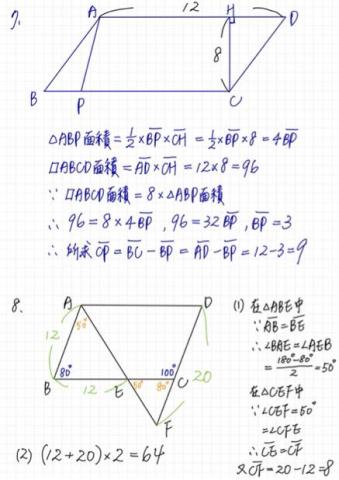 7.
A 12 H D
8
B P C
△ABP面積 = 1/2×BP̅×CH̅ = 1/2×BP̅×8 = 4BP̅
▱ABCD面積 = AD̅×CH̅ = 12×8 = 96
∵ ▱ABCD面積 = 8×△ABP面積
∴ 96 = 8×4BP̅ , 96 = 32BP̅ , BP̅ = 3
∴ 所求 CP̅ = BC̅ - BP̅ = AD̅ - BP̅ = 12-3 = 9
8.
A D
50°
12
80° 100°
B 12 E 50° 80° C 20
F
(1) 在△ABE中
∵ AB̅ = BE̅
∴ ∠BAE = ∠AEB
= (180°-80°)/2 = 50°
在△CEF中
∵ ∠CEF = 50°
= ∠CFE
∴ CE̅ = CF̅
又CF̅ = 20-12 = 8
(2) (12+20)×2 = 64